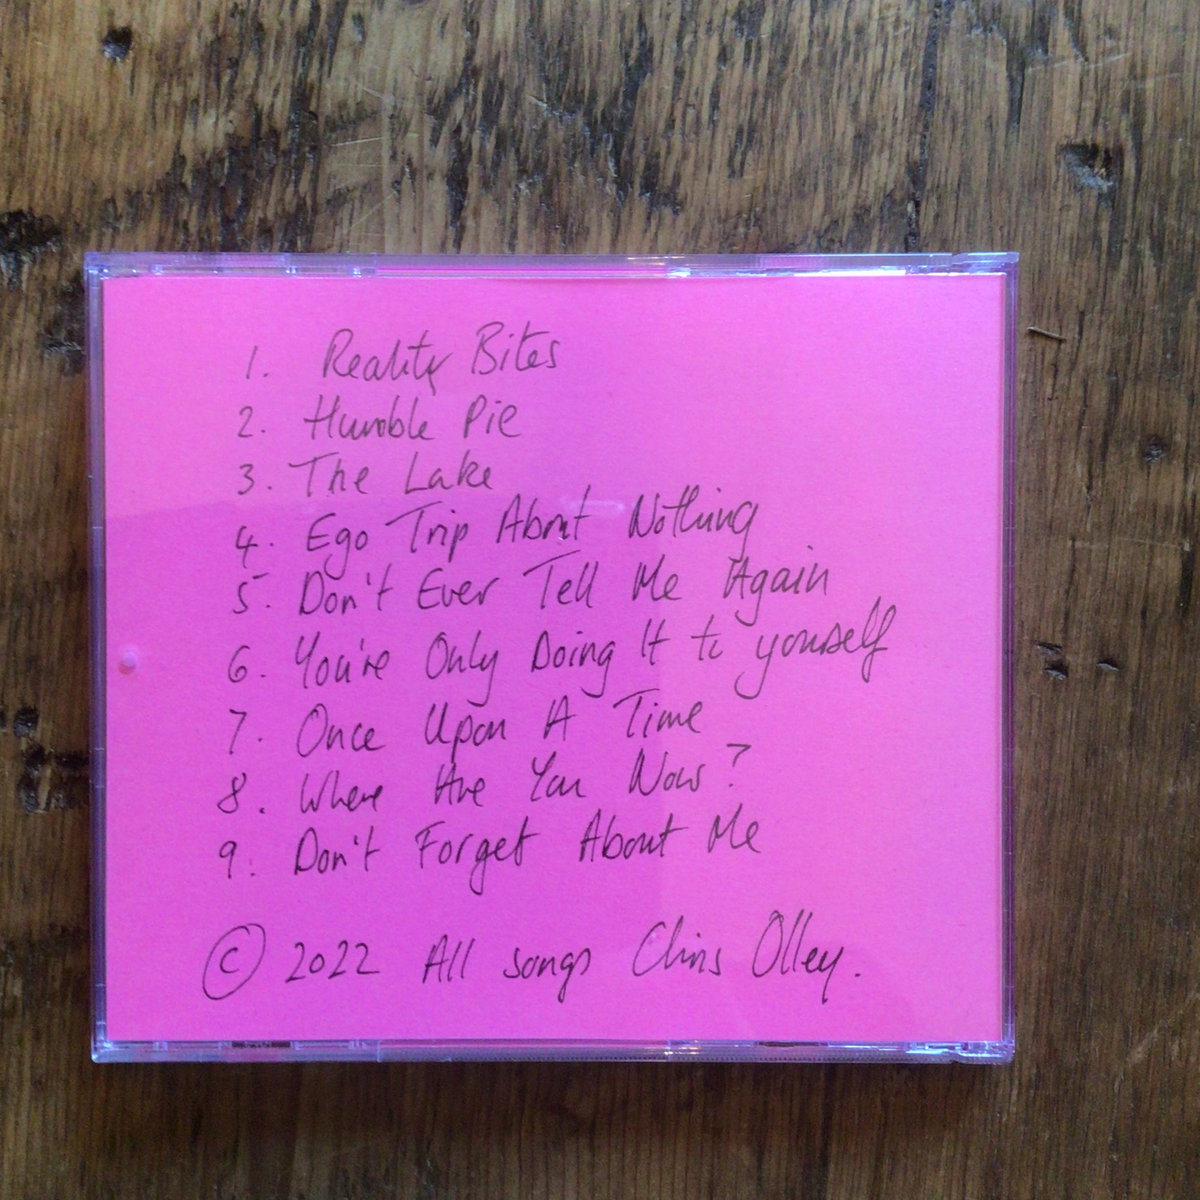 1. Reality Bites
2. Humble Pie
3. The Lake
4. Ego Trip About Nothing
5. Don't Ever Tell Me Again
6. You're Only Doing It to yourself
7. Once Upon A Time
8. Where Are You Now?
9. Don't Forget About Me
© 2022 All songs Chris Olley.